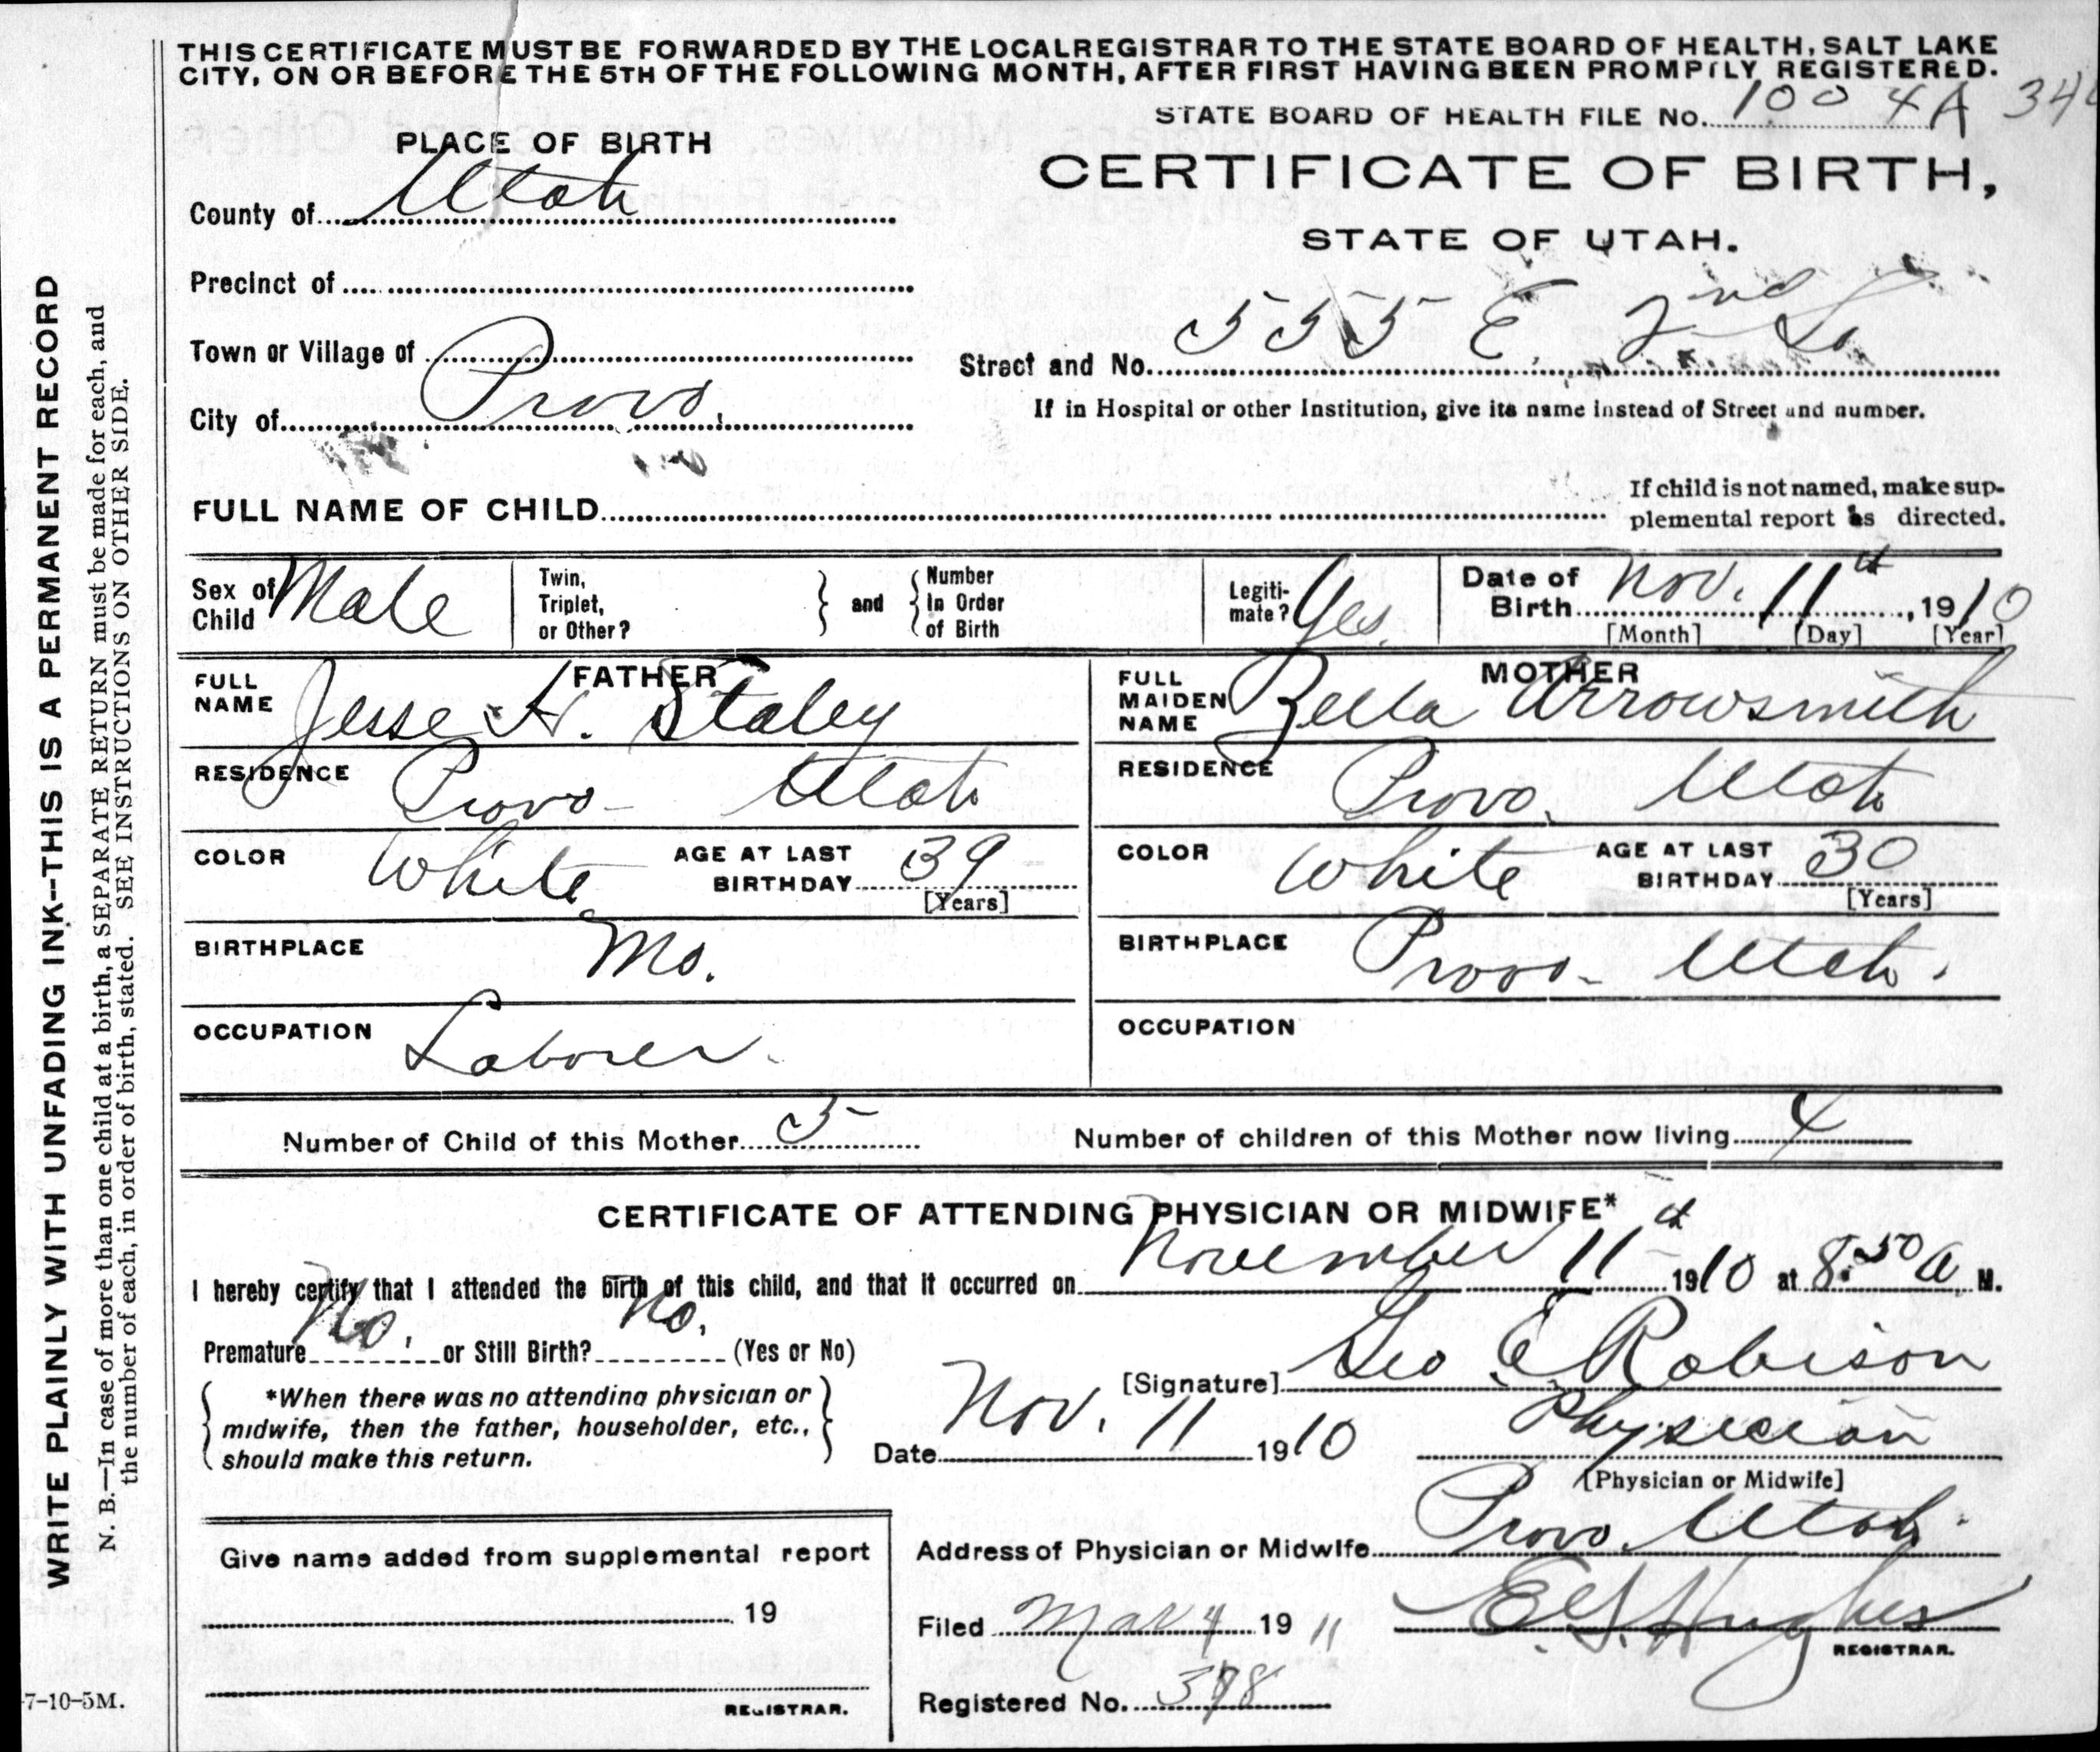 THIS CERTIFICATE MUST BE FORWARDED BY THE LOCAL REGISTRAR TO THE STATE BOARD OF HEALTH, SALT LAKE
CITY, ON OR BEFORE THE 5TH OF THE FOLLOWING MONTH, AFTER FIRST HAVING BEEN PROMPTLY REGISTERED.
STATE BOARD OF HEALTH FILE No. 1004A
PLACE OF BIRTH
CERTIFICATE OF BIRTH,
County of Utah
STATE OF UTAH.
Precinct of
Town or Village of
Street and No. 555 E. 2nd So
City of Provo.
If in Hospital or other Institution, give its name instead of Street and number.
FULL NAME OF CHILD
If child is not named, make sup-
plemental report as directed.
Sex of Child Male
Twin, Triplet, or Other? and Number In Order of Birth
Legiti-mate? Yes.
Date of Birth Nov. 11th, 1910
[Month] [Day] [Year]
FATHER
FULL NAME Jesse H. Staley
MOTHER
FULL MAIDEN NAME Zella Arrowsmith
RESIDENCE Provo - Utah
RESIDENCE Provo. Utah
COLOR White AGE AT LAST BIRTHDAY 39 [Years]
COLOR White AGE AT LAST BIRTHDAY 30 [Years]
BIRTHPLACE Mo.
BIRTHPLACE Provo - Utah.
OCCUPATION Laborer.
OCCUPATION
Number of Child of this Mother 5
Number of children of this Mother now living 4
CERTIFICATE OF ATTENDING PHYSICIAN OR MIDWIFE*
I hereby certify that I attended the birth of this child, and that it occurred on November 11th 1910 at 8:50 a M.
Premature No. or Still Birth? No. (Yes or No)
[Signature] Geo E Robison
*When there was no attending physician or
midwife, then the father, householder, etc.,
should make this return.
Date Nov. 11 1910
Physician
[Physician or Midwife]
Address of Physician or Midwife Provo. Utah.
Give name added from supplemental report
19
REGISTRAR.
Filed Mar 4 1911
E. G. Hughes
REGISTRAR.
Registered No. 378
WRITE PLAINLY WITH UNFADING INK--THIS IS A PERMANENT RECORD
N. B.—In case of more than one child at a birth, a SEPARATE RETURN must be made for each, and
the number of each, in order of birth, stated. SEE INSTRUCTIONS ON OTHER SIDE.
7-10-5M.